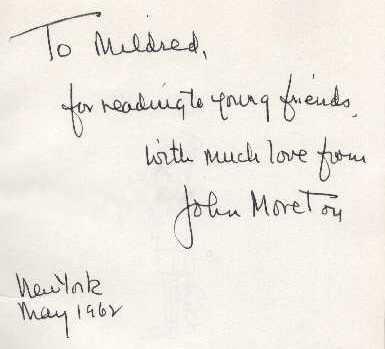 To Mildred,
for reading to young friends,
with much love from
John Moreton
New York
May 1962